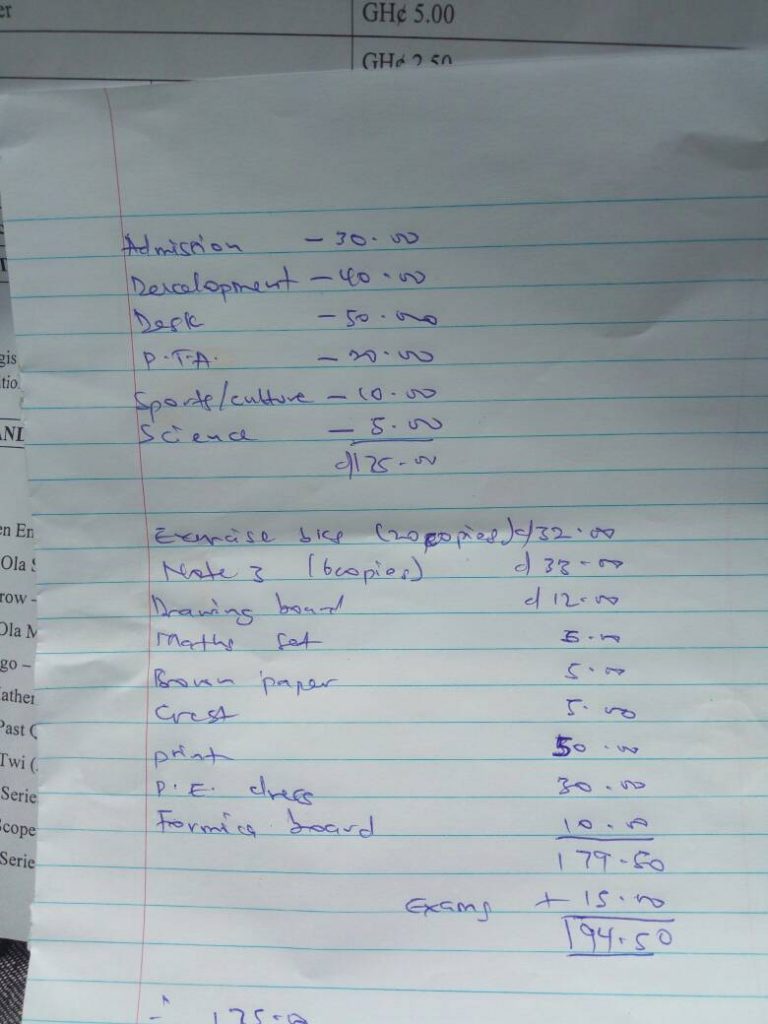 er
GH¢ 5.00
GH¢ 2.50
Admission - 30.00
Development - 40.00
Desk - 50.00
P.T.A. - 20.00
Sports/culture - 10.00
Science - 5.00
¢175.00
Exercise bks (20 copies) ¢32.00
Note 3 (6 copies) ¢ 33.00
Drawing board ¢ 12.00
Maths set 5.00
Brown paper 5.00
Crest 5.00
print 50.00
P.E. dress 30.00
Formica board 10.00
179.50
Exams + 15.00
194.50
∴ 175.00
gis
tio.
en En
Ola
row -
Ola M
go –
Past
Twi (
Serie
cope
Serie